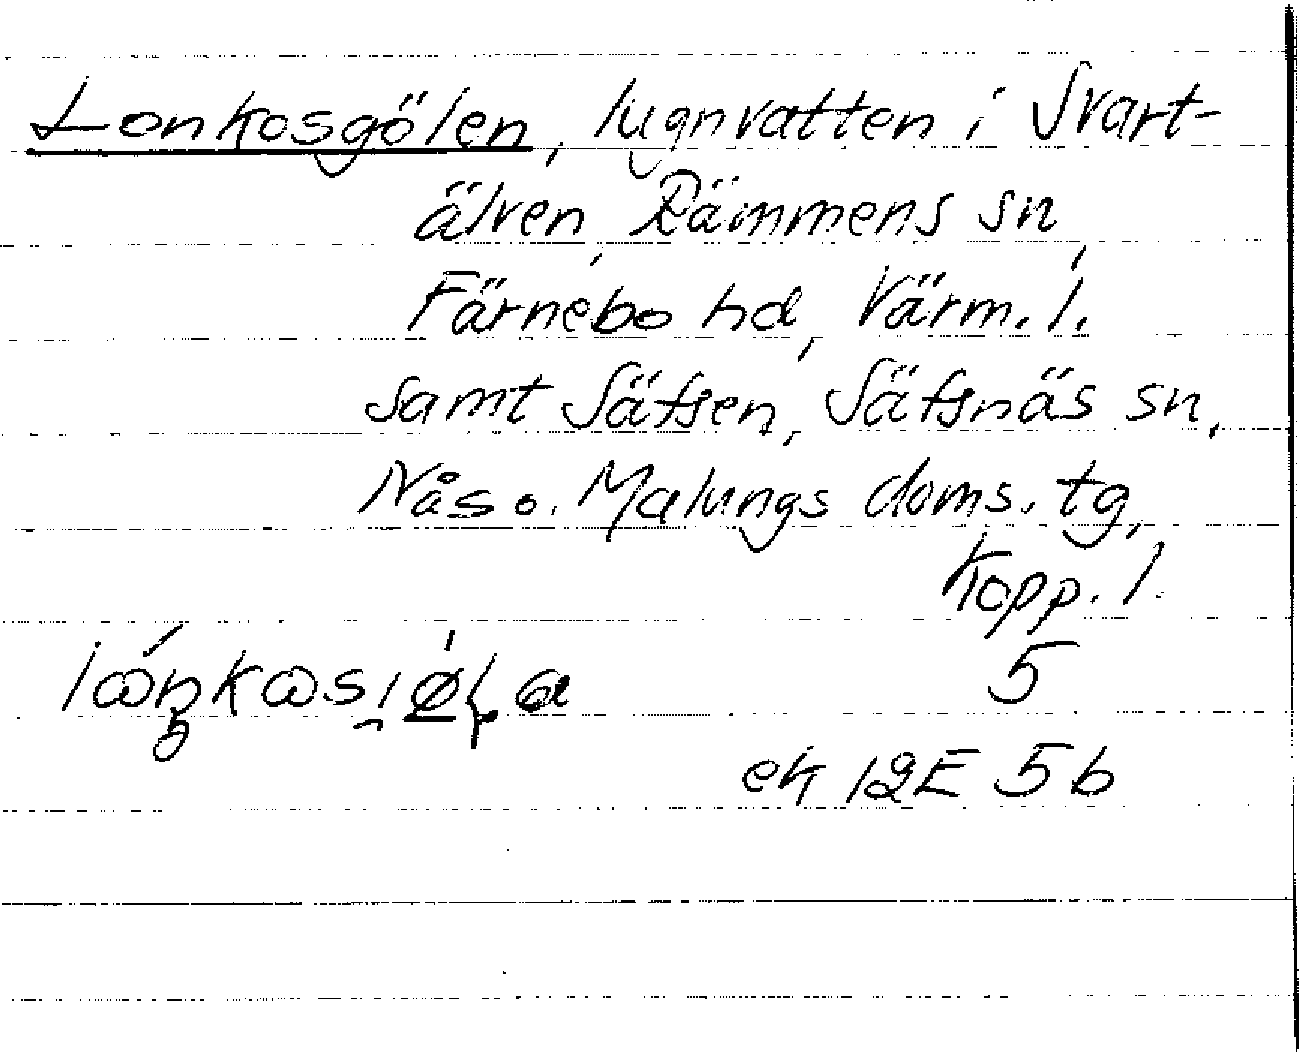 Lonkosgölen, lugnvatten i Svart-
älven, Rämmens sn,
Färnebo hd, Värm. l.
samt Säfsen, Säfsnäs sn,
Nås o. Malungs doms. tg,
Kopp. l.
5
ek 12E 5b